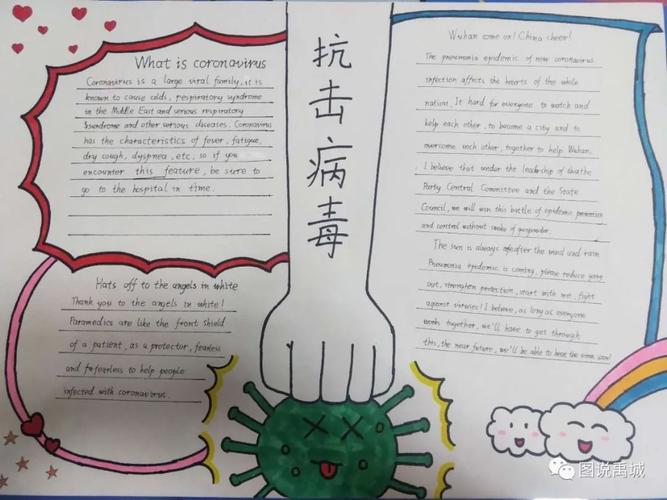 What is coronavirus
Coronavirus is a large viral family, it is
known to cause colds, respiratory syndrome
in the Middle East and serious respiratory
syndrome and other serious diseases. Coronavirus
has the characteristics of fever, fatigue,
dry cough, dyspnea, etc, so if you
encounter this feature, be sure to
go to the hospital in time.
Hats off to the angels in white
Thank you to the angels in white!
Paramedics are like the front shield
of a patient, as a protector, fearless
and fearless to help people
infected with coronavirus.
抗击病毒
Wuhan come on! China cheer!
The pneumonia epidemic of new coronavirus
infection affects the hearts of the whole
nation. It hard for everyone to watch and
help each other, to become a city and to
overcome each other, together to help Wuhan.
I believe that under the leadership of the
Party Central Committee and the State
Council, we will win this battle of epidemic prevention
and control without smoke of gunpowder.
The sun is always after the wind and rain
Pneumonia epidemic is coming, please reduce going
out, strengthen protection, start with me, fight
against viruses! I believe, as long as everyone
works together, we'll have to get through
this, the near future, we'll be able to have the some soon!
图说禹城